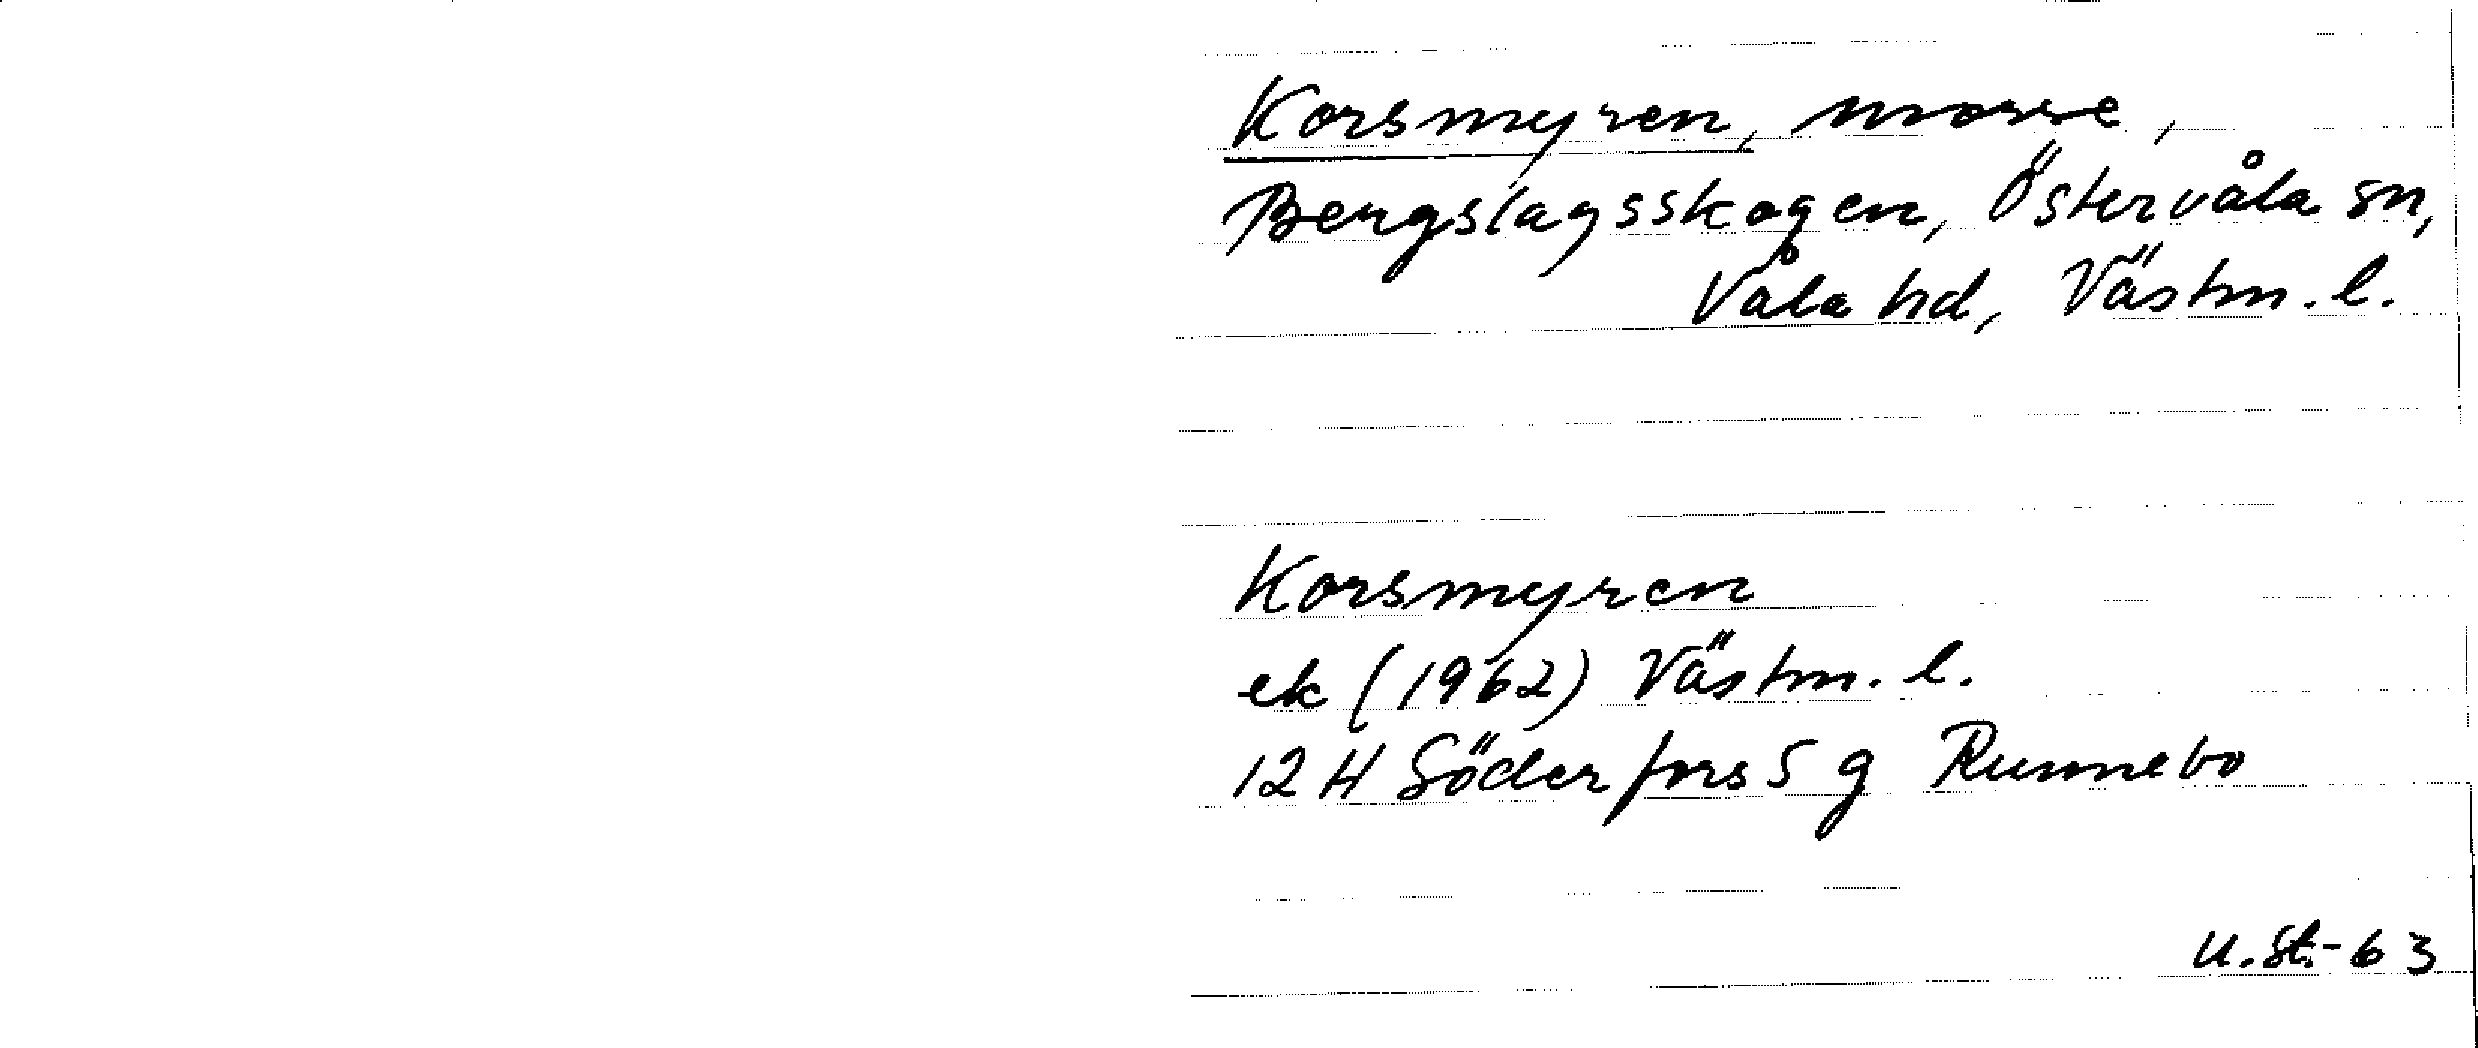 Korsmyren, mosse,
Bergslagsskogen, Östervåla sn,
Våla hd, Västm. l.
Korsmyren
ek (1962) Västm. l.
12 H Söderfors 5 g Runnebo
U.St.-63